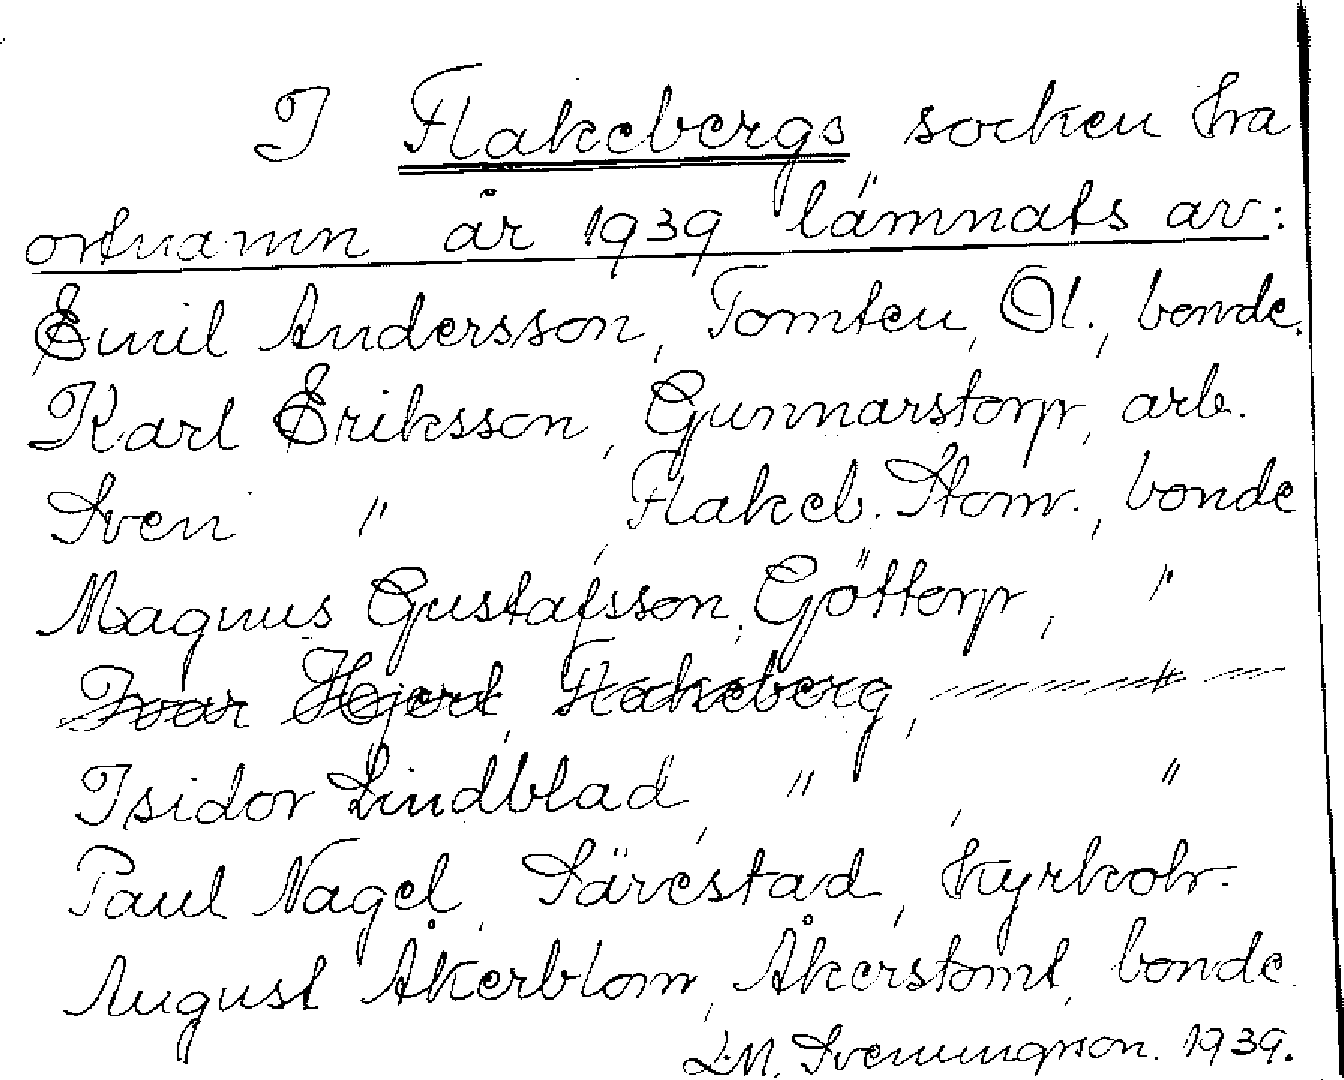 I Flakebergs socken ha
ortnamn år 1939 lämnats av:
Emil Andersson, Tomten, Öl., bonde.
Karl Eriksson, Gunnarstorp, arb.
Sven " , Flakeb. Stom., bonde
Magnus Gustafsson, Göttorp, "
Ivar Hjert, Flakeberg, "
Isidor Lindblad, " , "
Paul Nagel, Särestad, kyrkoh.
August Åkerblom, Åkerstomt, bonde
D.M. Sveningson. 1939.